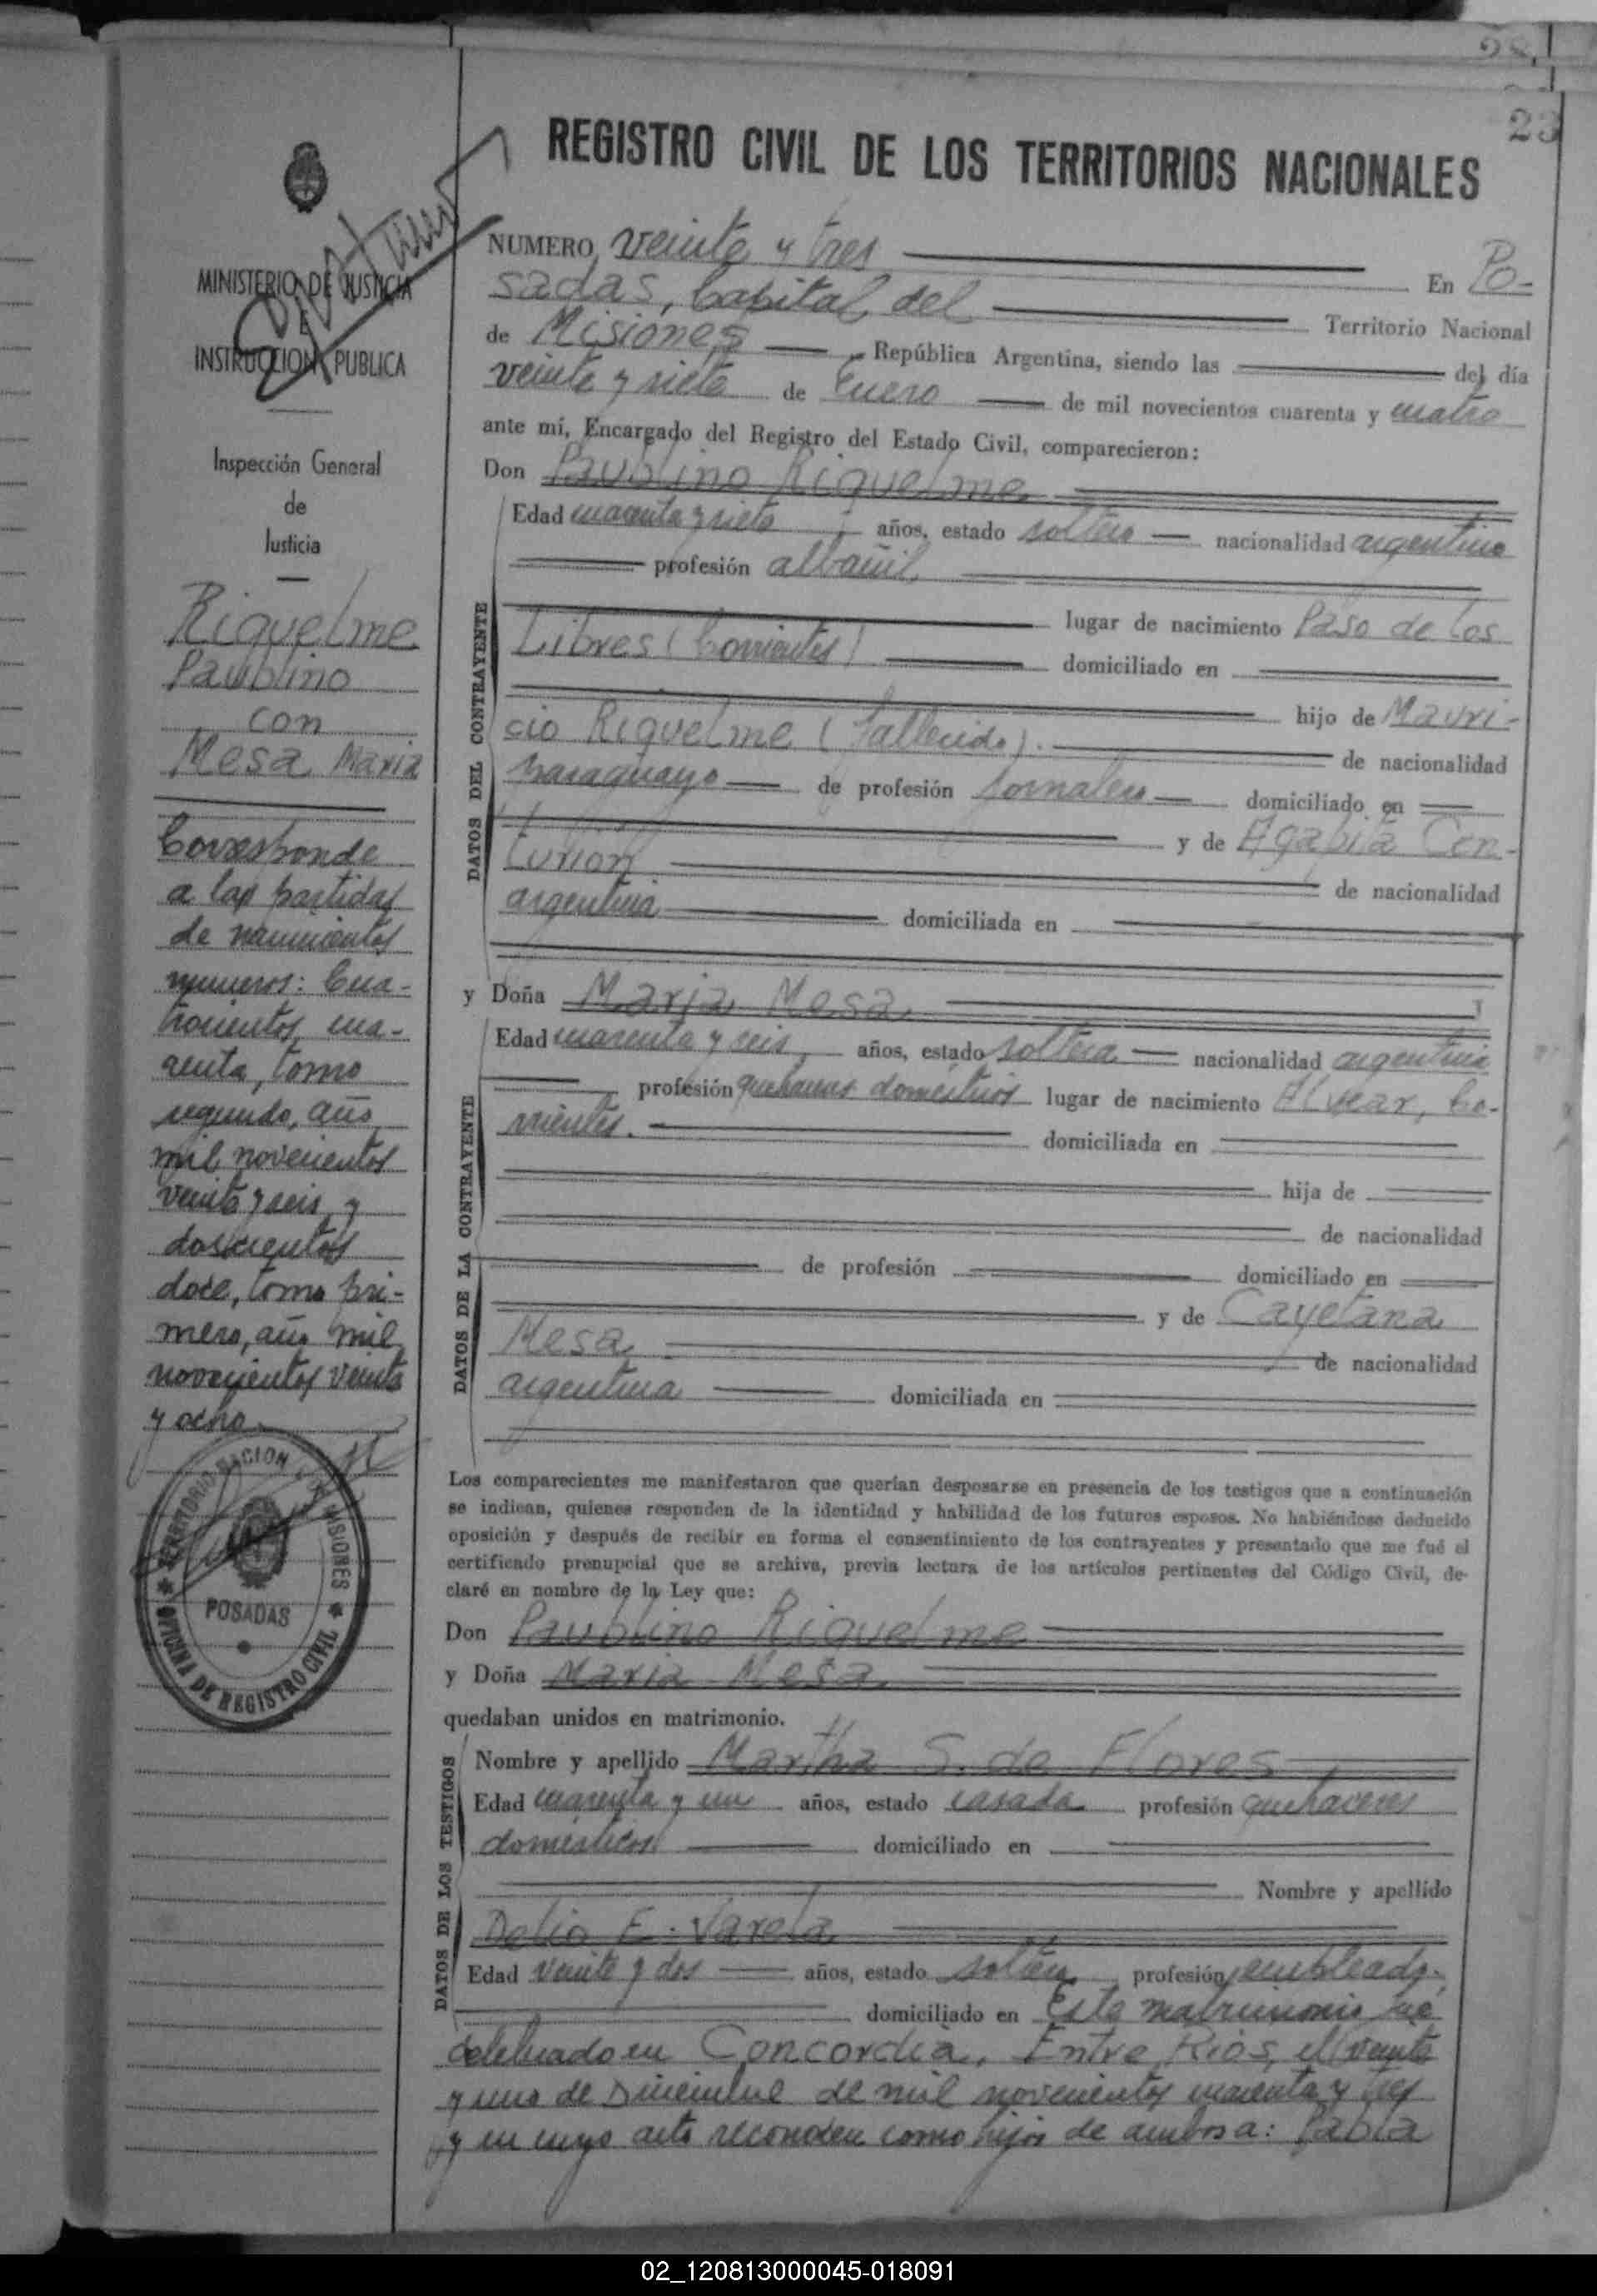 23
REGISTRO CIVIL DE LOS TERRITORIOS NACIONALES
NUMERO veinte y tres
En Po-
sadas, Capital del
Territorio Nacional
de Misiones República Argentina, siendo las del día
veinte y siete de Enero de mil novecientos cuarenta y cuatro
ante mí, Encargado del Registro del Estado Civil, comparecieron:
Don Paublino Riquelme
Edad cuarenta y siete años, estado soltero nacionalidad argentina
profesión albañil,
lugar de nacimiento Paso de los
Libres (Corrientes) domiciliado en
hijo de Mauri-
cio Riquelme (fallecido).
de nacionalidad
paraguayo de profesión jornalero domiciliado en
y de Agapita Cen-
turion
de nacionalidad
argentina domiciliada en
y Doña Maria Mesa
Edad cuarenta y seis, años, estado soltera nacionalidad argentina
profesión quehaceres domésticos lugar de nacimiento Alvear, Co-
rrientes. domiciliada en
hija de
de nacionalidad
de profesión domiciliado en
y de Cayetana
Mesa
de nacionalidad
argentina domiciliada en
DATOS DEL CONTRAYENTE
DATOS DE LA CONTRAYENTE
Los comparecientes me manifestaron que querían desposarse en presencia de los testigos que a continuación
se indican, quienes responden de la identidad y habilidad de los futuros esposos. No habiéndose deducido
oposición y después de recibir en forma el consentimiento de los contrayentes y presentado que me fué el
certificado prenupcial que se archiva, previa lectura de los artículos pertinentes del Código Civil, de-
claré en nombre de la Ley que:
Don Paublino Riquelme
y Doña Maria Mesa
quedaban unidos en matrimonio.
DATOS DE LOS TESTIGOS
Nombre y apellido Martha S. de Flores
Edad cuarenta y un años, estado casada profesión quehaceres
domésticos domiciliado en
Nombre y apellido
Delio E. Varela
Edad veinte y dos años, estado soltero profesión empleado,
domiciliado en Este matrimonio fué
celebrado en Concordia, Entre Rios, el veinte
y uno de Diciembre de mil novecientos cuarenta y tres
y en cuyo acto reconocen como hijos de ambos a: Pabla
MINISTERIO DE JUSTICIA
E
INSTRUCCION PUBLICA
Inspección General
de
Justicia
Riquelme
Paublino
con
Mesa Maria
Corresponde
a las partidas
de nacimientos
numeros: Cua-
trocientos cua-
renta, tomo
segundo, año
mil novecientos
veinte y seis, y
doscientos
doce, tomo pri-
mero, año mil
novecientos veinte
y ocho
TERRITORIO NACIONAL DE MISIONES
POSADAS
OFICINA DE REGISTRO CIVIL
02_120813000045-018091